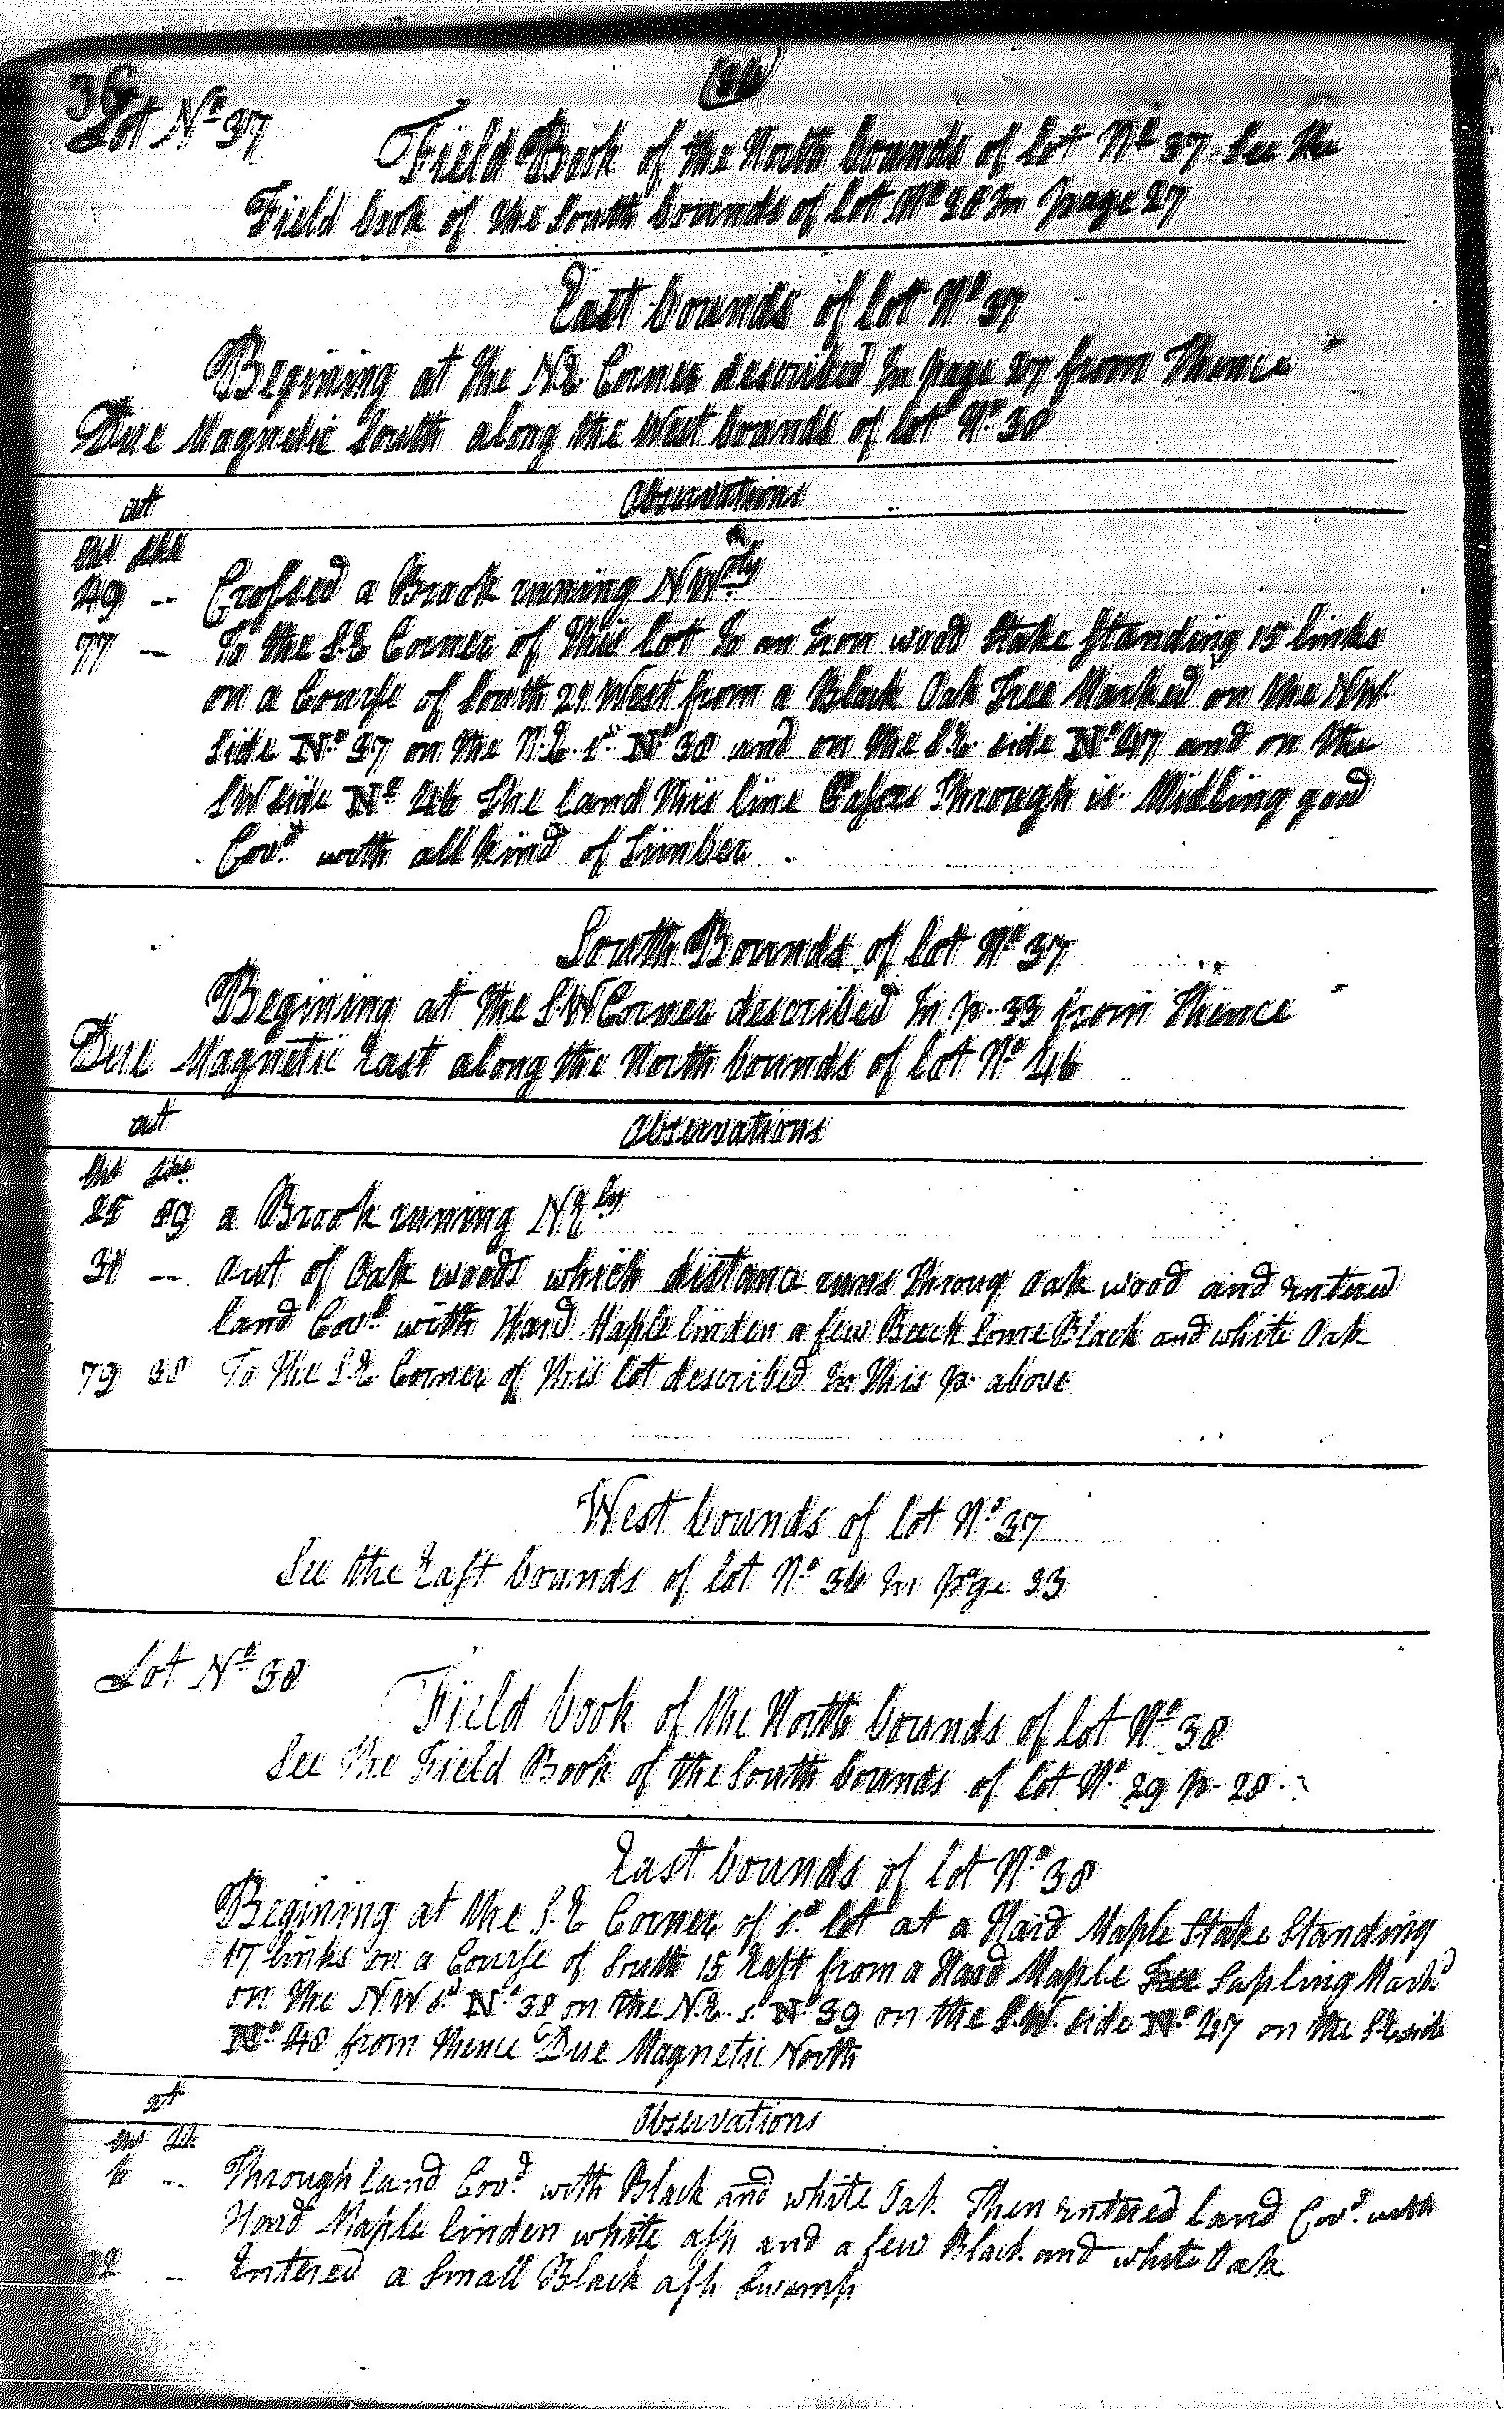 (34)
Lot No 37
Field Book of the North bounds of lot No 37 See the
Field book of the South bounds of lot No 28 In page 27
East bounds of lot No 37
Begining at the NE Corner described In page 27 from Thence
Due Magnetic South along the West bounds of lot No 38
at Observations
Chs Lks
49 -- Crossed a Brook runing NWly
77 -- To the S.E Corner of this lot to an Iron wood Stake Standing 15 links
on a Course of South 21 West from a Black Oak Tree Marked on the NW
side No 37 on the N.E. sd No 38 and on the SE side No 47 and on the
SW side No 46 The Land this line Passes Through is Midling good
Covd with all kind of Timber
South Bounds of lot No 37
Begining at the SW Corner described In p. 33 from Thence
Due Magnetic East along the North bounds of lot No 46
at Observations
Chs Lks
25 89 a Brook runing NEly
31 -- out of Oak woods which distance runs Throug Oak wood and entered
land Covd with Hard Maple linden a few Beech Some Black and white Oak
79 38 To the S.E Corner of this lot described In this p. above
West bounds of lot No 37
See the East bounds of lot No 36 In page 33
Lot No 38
Field book of the North bounds of lot No 38
See the Field Book of the South bounds of lot No 29 p. 28
East bounds of lot No 38
Begining at the S.E Corner of sd lot at a Hard Maple Stake Standing
17 links on a Course of South 15 East from a Hard Maple Tree Sapling Markd
on the NW sd No 38 on the N.E. s. No 39 on the S.W. side No 47 on the SE side
No 48 from thence Due Magnetic North
at Observations
Chs Lks
6 -- Through land Covd with Black and white Oak Then entered land Covd with
Hard Maple linden white ash and a few Black and white Oak
-- Entered a Small Black ash Swamp